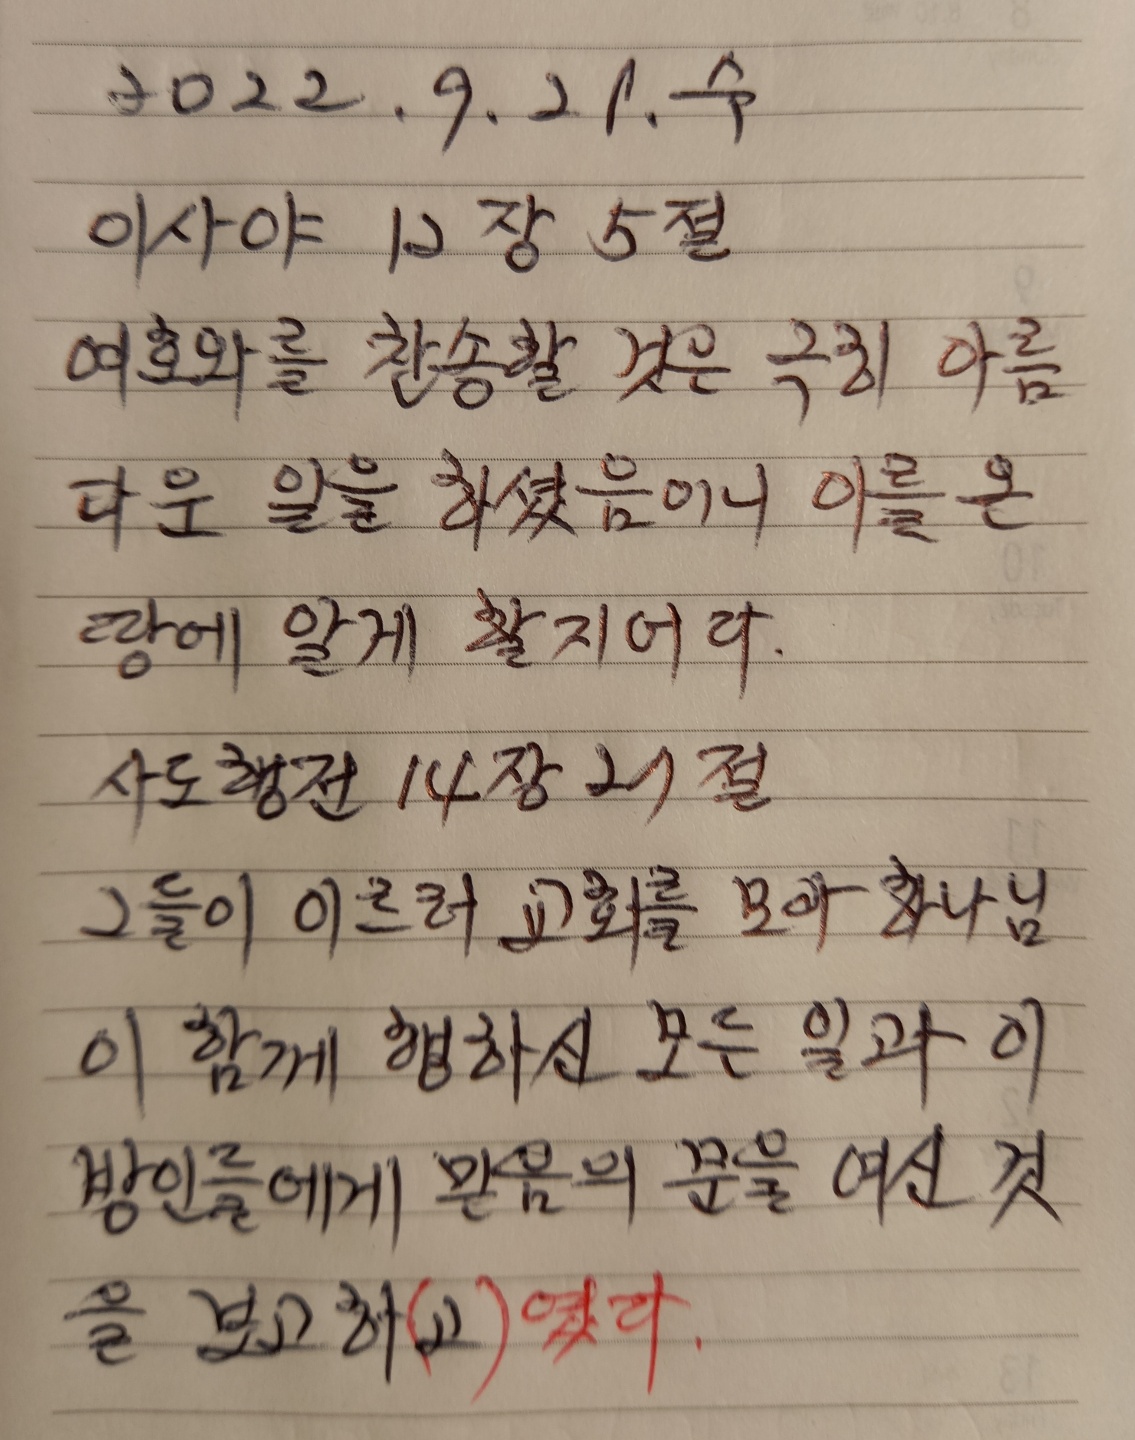 2022.9.21.수
이사야 12장 5절
여호와를 찬송할 것은 극히 아름
다운 일을 하셨음이니 이를 온
땅에 알게 할지어다.
사도행전 14장 27절
그들이 이르러 교회를 모아 하나님
이 함께 행하신 모든 일과 이
방인들에게 믿음의 문을 여신 것
을 보고하(고)였다.